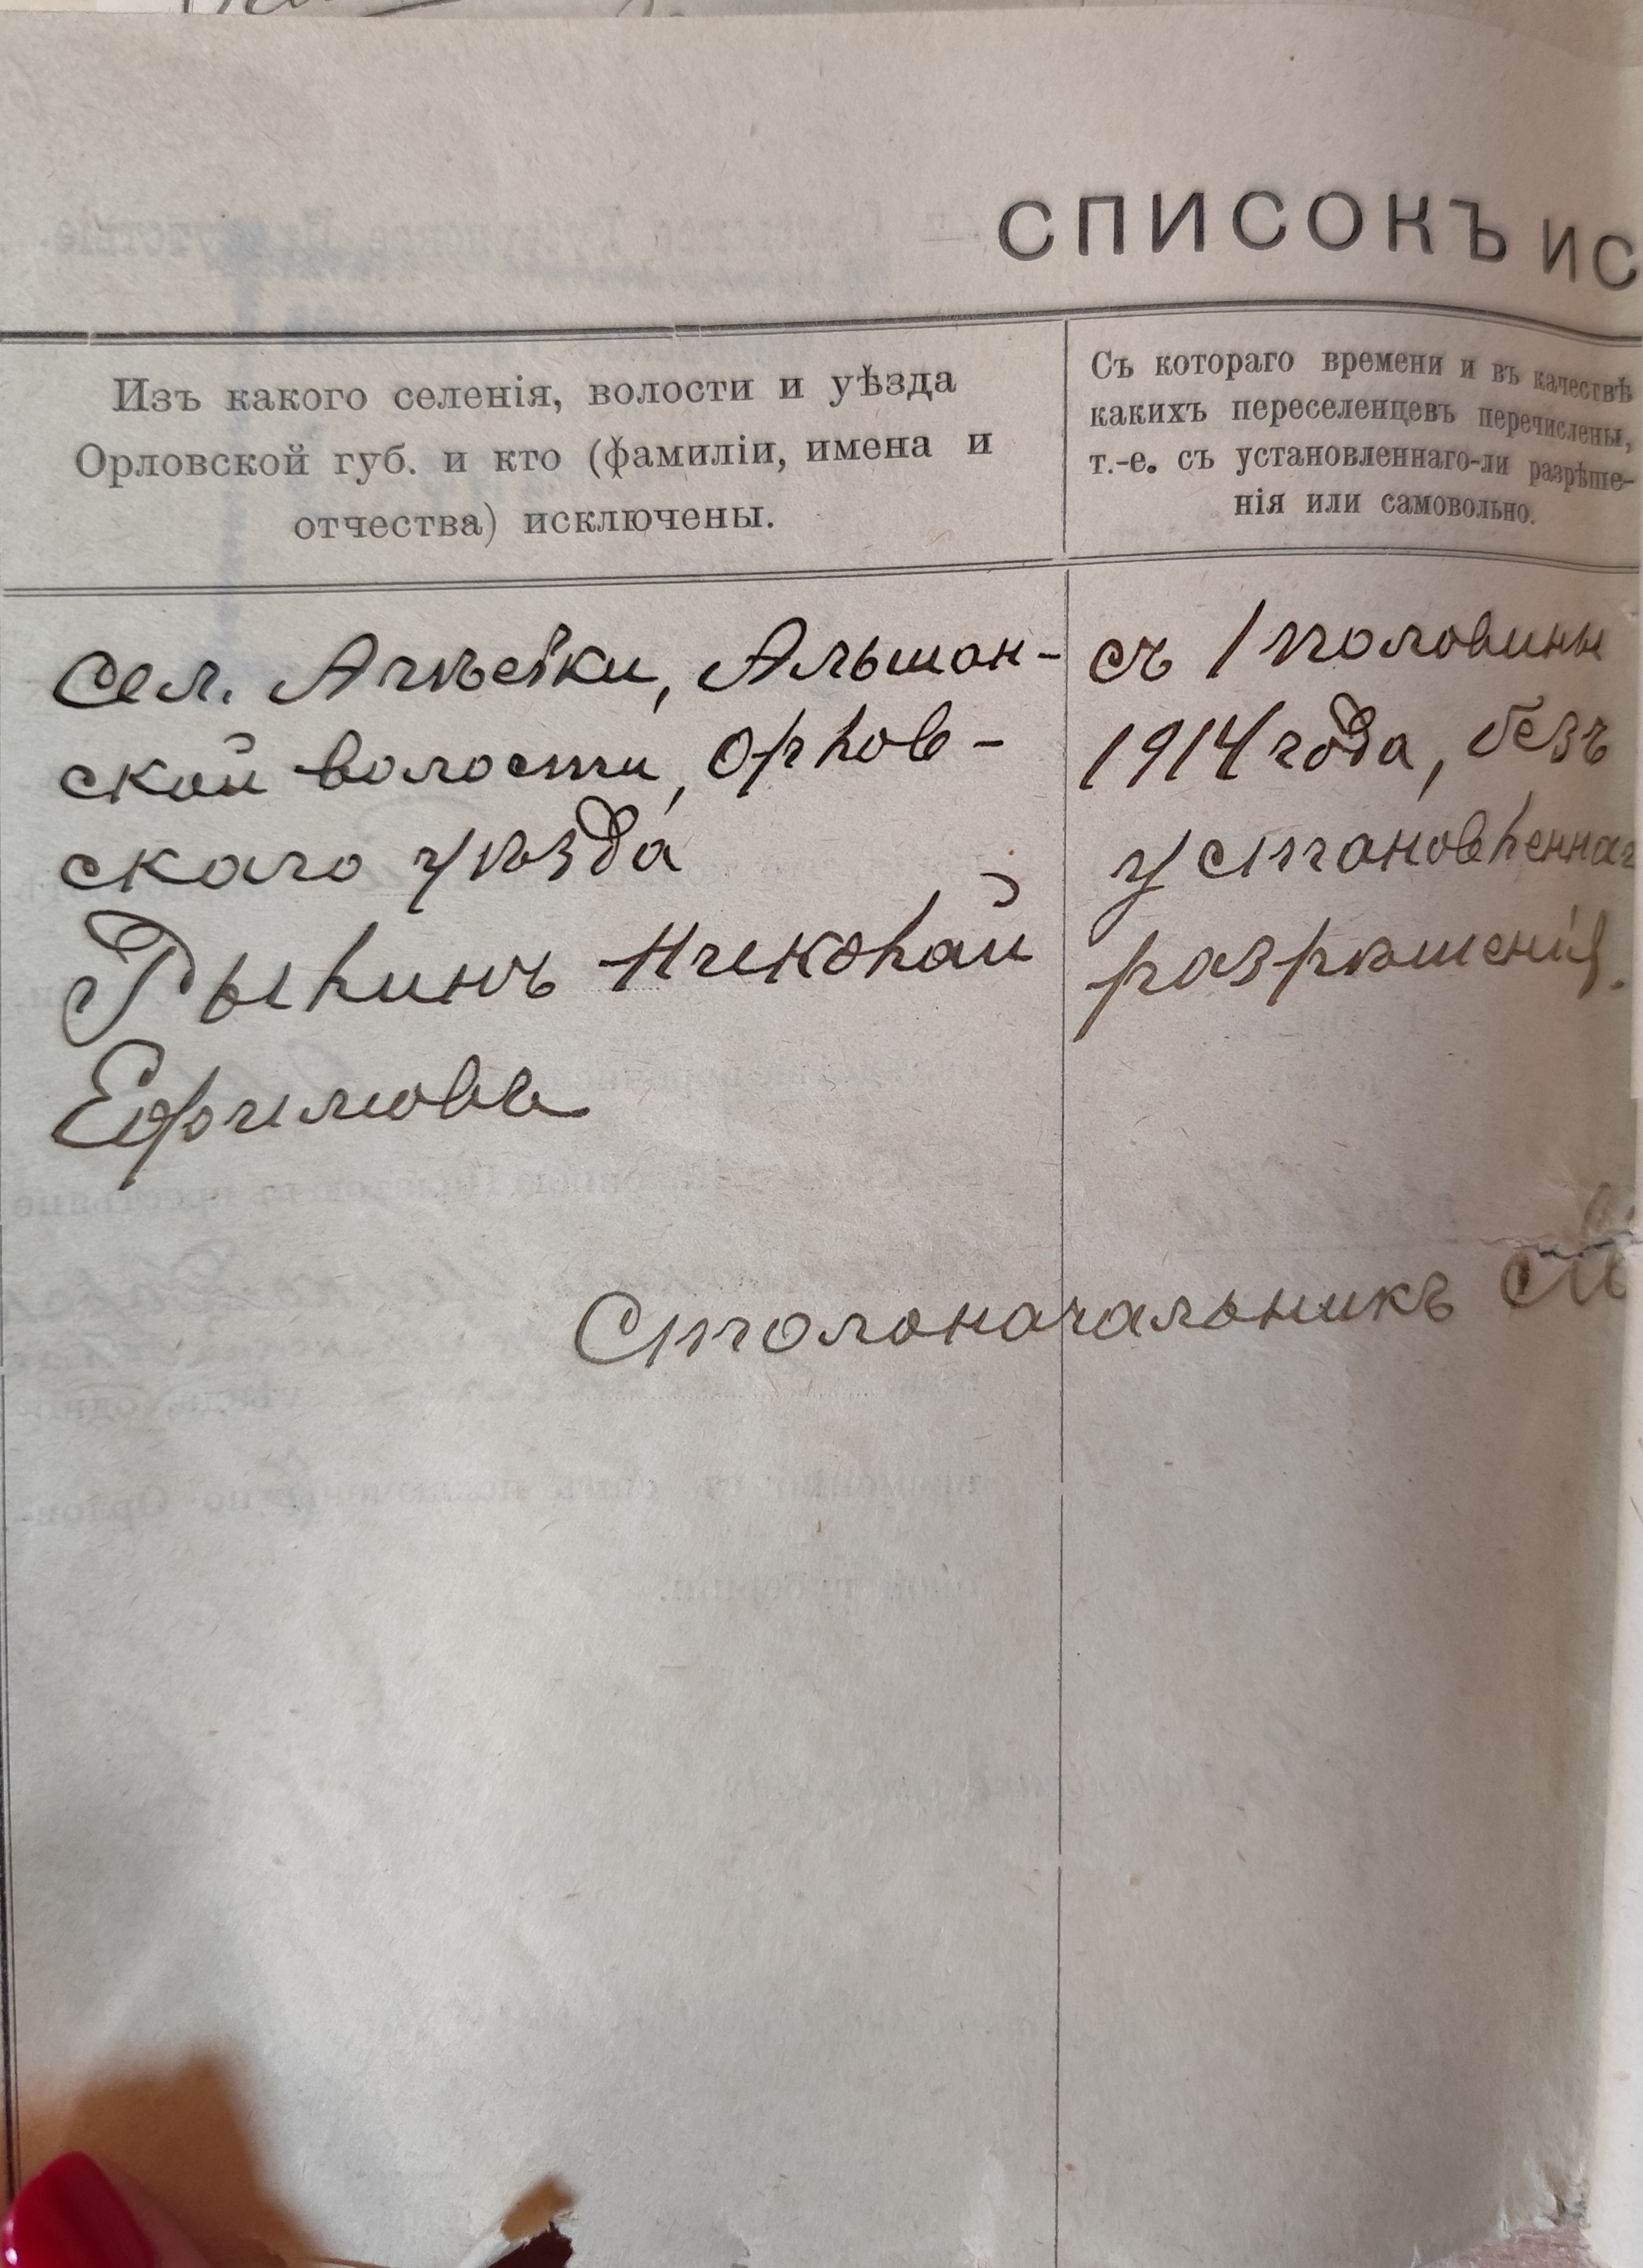 СПИСОКЪ ИС
Изъ какого селенія, волости и уѣзда
Орловской губ. и кто (фамиліи, имена и
отчества) исключены.
Съ котораго времени и въ качествѣ
какихъ переселенцевъ перечислены,
т.-е. съ установленнаго-ли разрѣше-
нія или самовольно.
Сел. Агѣевки, Альшан-
ской волости, Орлов-
скаго уѣзда
Рылинъ Николай
Ефимовъ
съ 1 половины
1914 года, безъ
установленнаг
разрѣшенія.
Столоначальникъ